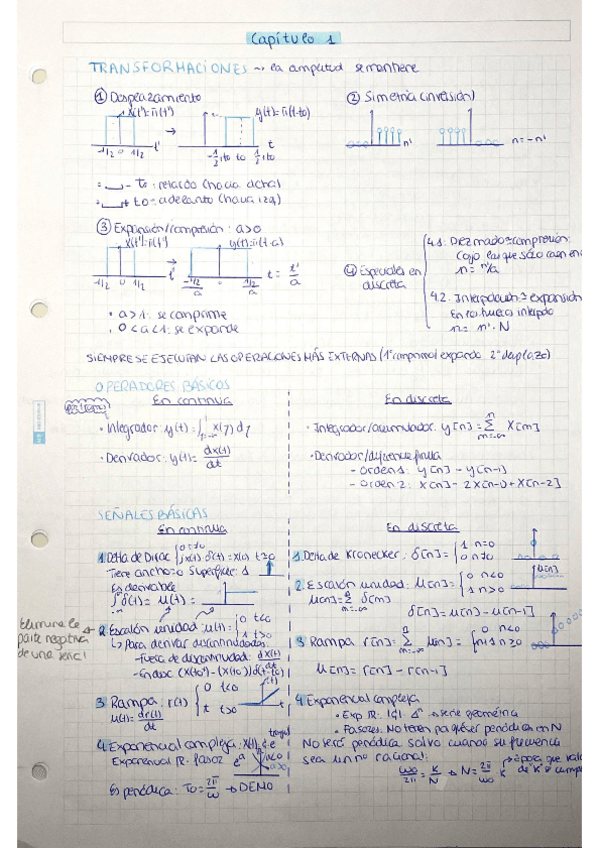 Capítulo 1
TRANSFORMACIONES ~ la amplitud se mantiene
① Desplazamiento
x(t')=π(t')
y(t)=π(t-to)
-1/2 0 1/2 t'
-1/2+to to 1/2+to t
- to: retardo (hacia dcha)
+ to = adelanto (hacia izq)
② Simetría (inversión)
n'
n=-n'
③ Expansión/compresión: a>0
x(t')=π(t')
y(t)=π(t·a)
-1/2 0 1/2 t'
-1/2/a 0 1/2/a
t = t'/a
• a>1: se comprime
• 0<a<1: se expande
④ Especiales en discreta
4.1. Diezmado=compresión:
Cojo las que sólo caen en
n = n'/a
4.2. Interpolación = expansión
En los huecos interpolo
n = n'·N
SIEMPRE SE EJECUTAN LAS OPERACIONES MÁS EXTERNAS (1º comprimo/expando 2º desplazo)
OPERADORES BÁSICOS
En continua
• Integrador: y(t)=∫x(τ)dτ
• Derivador: y(t)= dx(t)/dt
En discreta
• Integrador/acumulador: y[n]=Σ x[m]
• Derivador/diferencia finita
- orden 1: y[n]-y[n-1]
- orden 2: x[n]-2x[n-1]+x[n-2]
SEÑALES BÁSICAS
En continua
1. Delta de Dirac
Tiene ancho=0 Superficie: 1
Es derivable
∫δ(t)=u(t)=
Elimina la
parte negativa
de una señal
2. Escalón unidad: u(t)= { 0 t<0
1 t>0
↳ Para derivar discontinuidades
- Fuera de discontinuidad: dx(t)/dt
- En disc (x(to+)-x(to-))δ(t-to)
3. Rampa: r(t) { 0 t<0
t t>0
u(t)= dr(t)/dt
4. Exponencial compleja: x(t)
Exponencial ℝ: fasor
Es periódica: To= 2π/ω → DEMO
En discreta
1. Delta de Kronecker: δ[n]= { 1 n=0
0 n≠0
2. Escalón unidad: u[n]= { 0 n<0
1 n>0
u[n]
u[n]=Σ δ[m]
δ[n]=u[n]-u[n-1]
3 Rampa r[n]=Σ u[n]= { 0 n<0
n+1 n≥0
u[n]=r[n]-r[n-1]
4 Exponencial compleja
• Exp ℝ: → serie geométrica
• Fasores: No tienen pq ser periódicos en N
No será periódica salvo cuando su frecuencia
sea un nº racional:
ωo/2π = K/N → N= 2π/ωo K